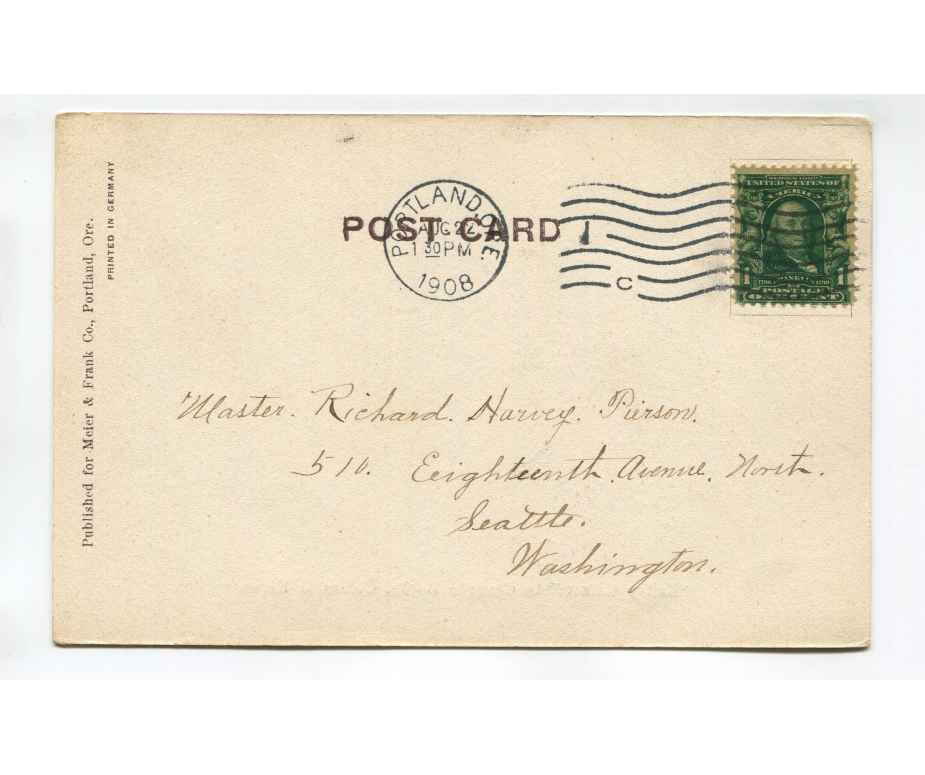 POST CARD
PORTLAND, ORE.
AUG 22
1 30 PM
1908
C
1
SERIES 1902
UNITED STATES OF
AMERICA
1 1
POSTAGE
ONE CENT
Published for Meier & Frank Co., Portland, Ore.
PRINTED IN GERMANY
Master. Richard. Harvey. Pierson.
510. Eeighteenth. Avenue. North.
Seattle.
Washington.